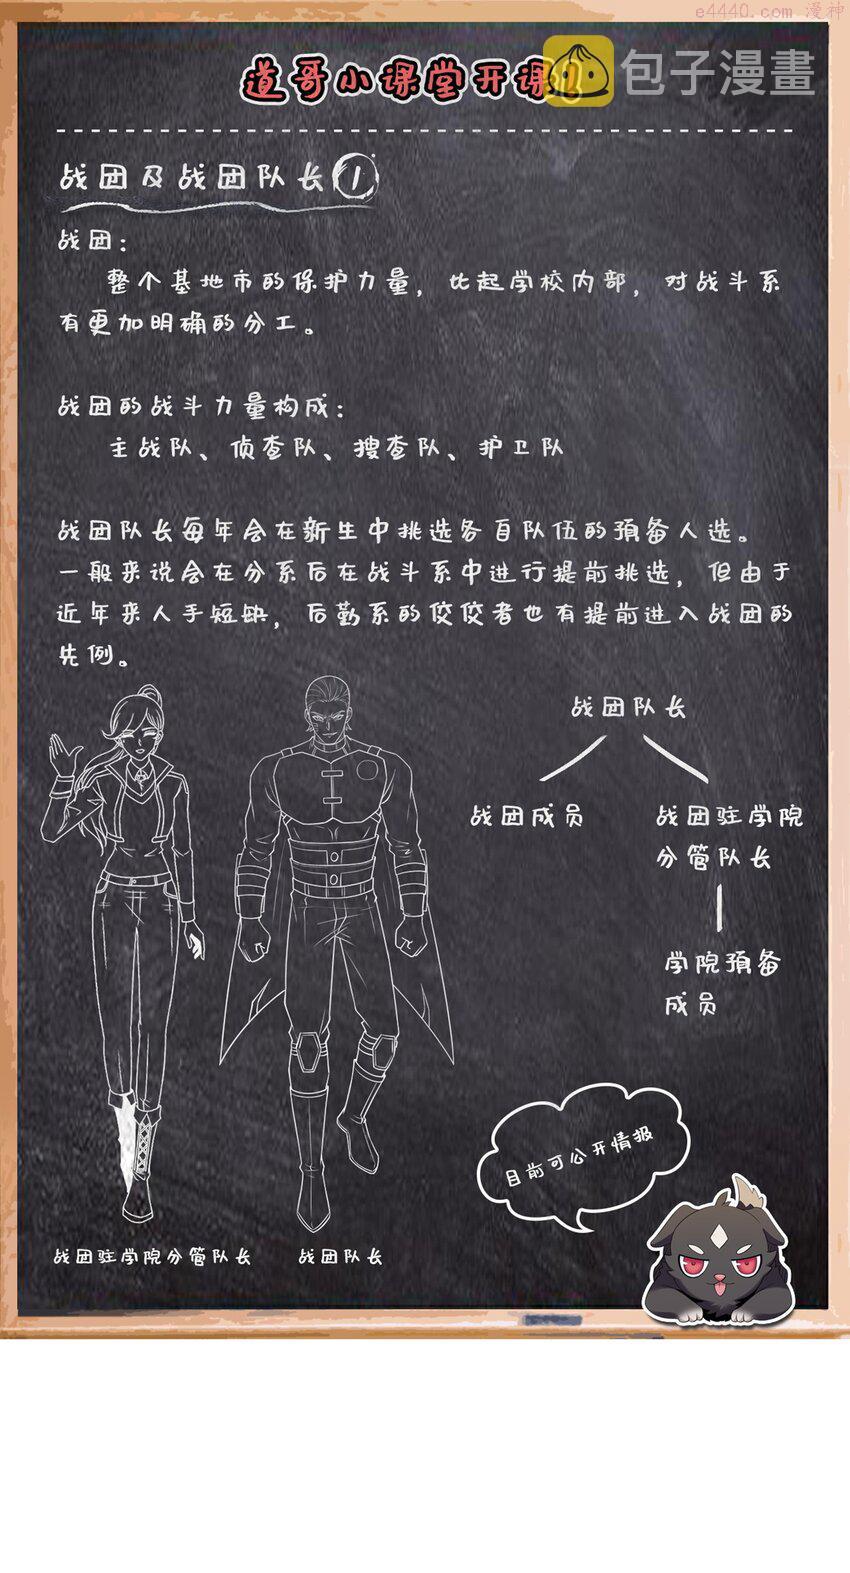 e4440.com 漫神
道哥小课堂开课
包子漫畫
战团及战团队长①
战团：
整个基地市的保护力量，比起学校内部，对战斗系
有更加明确的分工。
战团的战斗力量构成：
主战队、侦查队、搜查队、护卫队
战团队长每年会在新生中挑选各自队伍的预备人选。
一般来说会在分系后在战斗系中进行提前挑选，但由于
近年来人手短缺，后勤系的佼佼者也有提前进入战团的
先例。
战团队长
战团成员
战团驻学院
分管队长
学院预备
成员
目前可公开情报
战团驻学院分管队长
战团队长